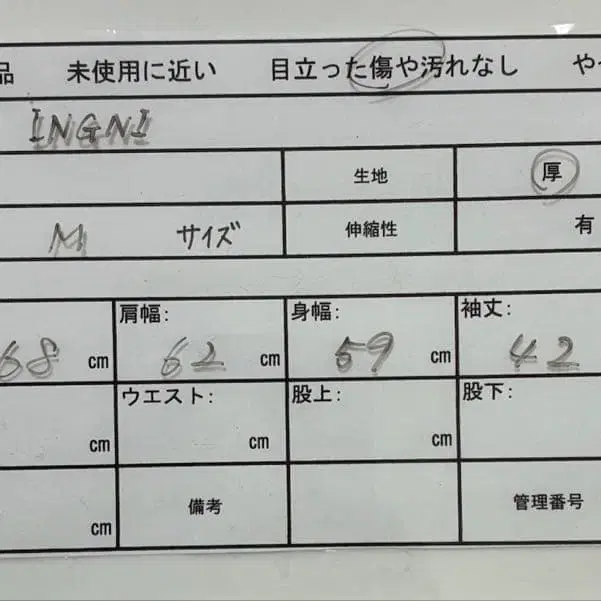 品 未使用に近い 目立った傷や汚れなし や
INGNI
生地 厚
M サイズ 伸縮性 有
肩幅: 身幅: 袖丈:
68 cm 62 cm 59 cm 42
ウエスト: 股上: 股下:
cm cm cm
cm 備考 管理番号